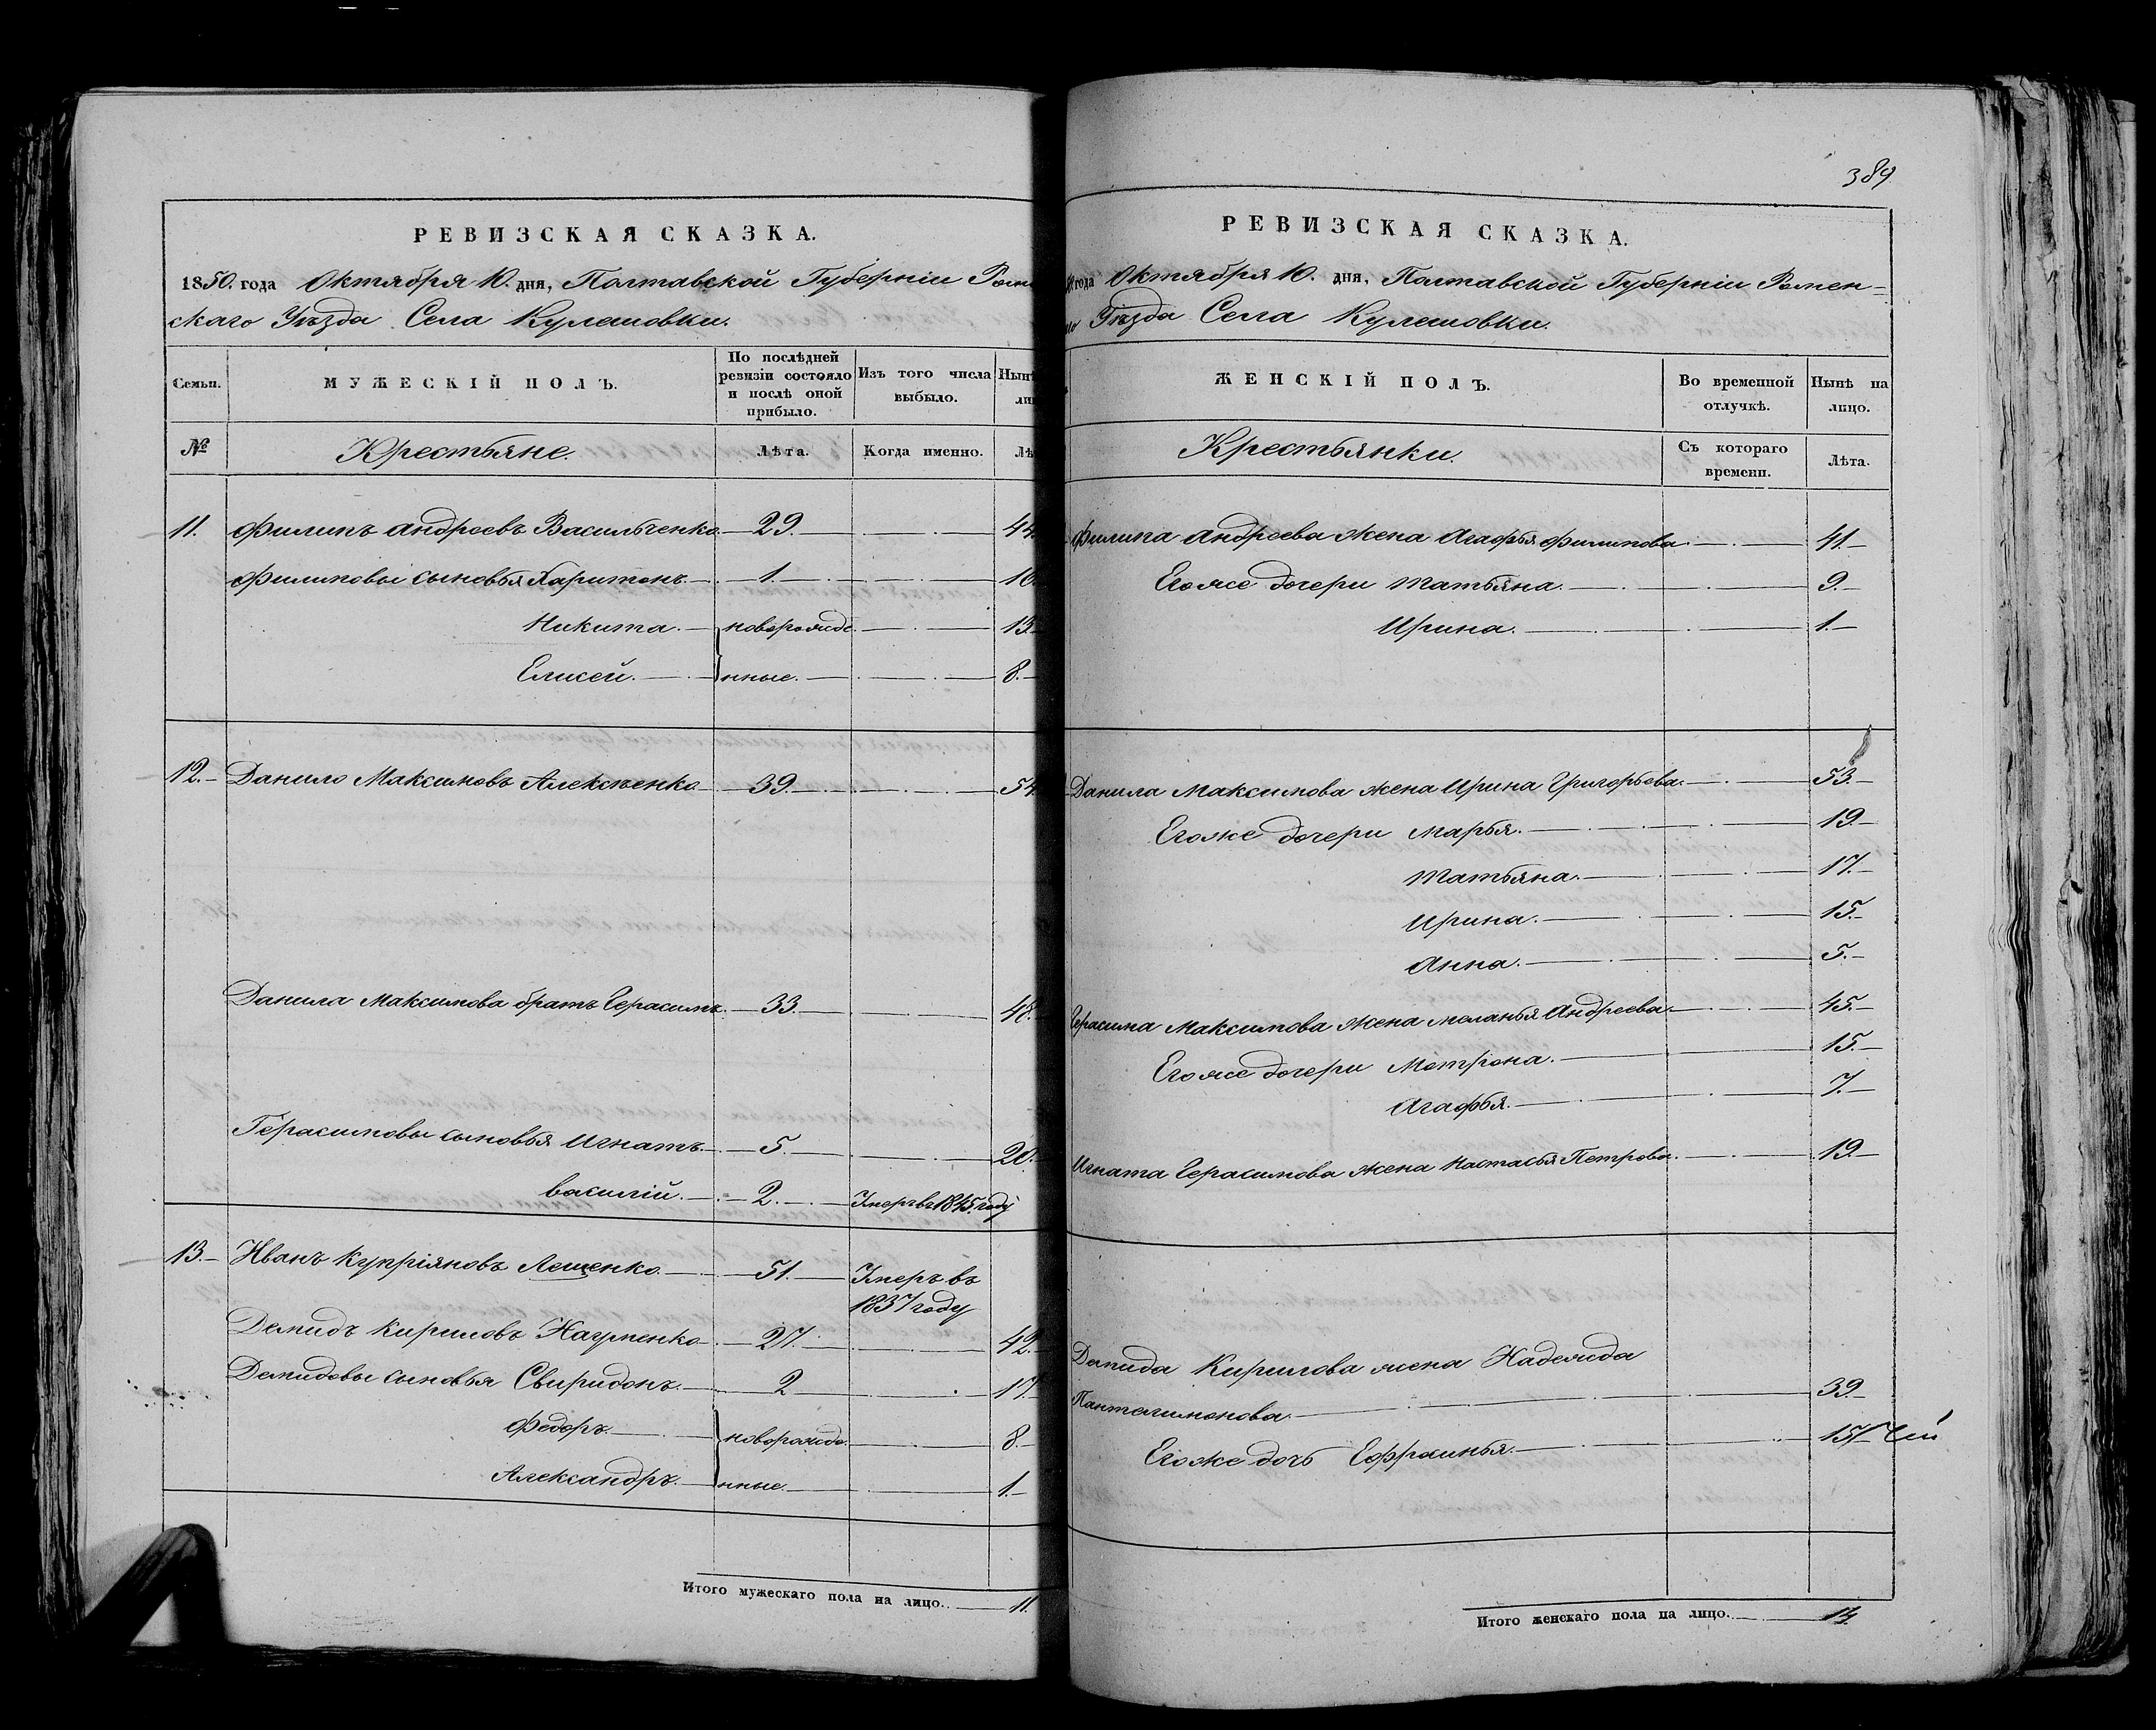 РЕВИЗСКАЯ СКАЗКА.
1850. года Октября 10. дня, Полтавской Губерніи Ромен
скаго Уѣзда Села Кулешовки.
Семьи.
МУЖЕСКІЙ ПОЛЪ.
По послѣдней ревизіи состояло и послѣ оной прибыло.
Изъ того числа выбыло.
Нынѣ
ли
№
Крестьяне.
Лѣта.
Когда именно.
Лѣ
11. Филипъ Андреевъ Васильченко 29. 44.
Филиповы сыновья Харитонъ 1. 16.
Никита. новорожде 13
Елисей. нные. 8.
12. Данило Максимовъ Алексѣенко 39. 54.
Данила Максимова братъ Герасимъ 33. 48.
Герасимовы сыновья Игнатъ 5. 20.
Василій. 2. Умеръ въ 1845. году
13. Иванъ Купріяновъ Лещенко 51. Умеръ въ
1837 году
Демидъ Кириловъ Науменко 27. 42.
Демидовы сыновья Свиридонъ 2 17.
Федоръ новорожде 8.
Александръ. нные. 1.
Итого мужескаго пола на лицо. 11.
389
РЕВИЗСКАЯ СКАЗКА.
года Октября 10. дня, Полтавской Губерніи Ромен=
Уѣзда Села Кулешовки.
ЖЕНСКІЙ ПОЛЪ.
Во временной отлучкѣ.
Нынѣ на лицо.
Крестьянки.
Съ котораго времени.
Лѣта.
Филипа Андреева жена Агафья Филипова 41.
Егоже дочери Татьяна. 9.
Ирина. 1.
Данила Максимова жена Ирина Григорьева. 53.
Егоже дочери Марья. 19
Татьяна. 17.
Ирина. 15.
Анна. 5.
Герасима Максимова жена Меланья Андреева 45.
Егоже дочери Мотрона. 15.
Агафья. 7.
Игната Герасимова жена Настасья Петрова. 19.
Демида Кирилова жена Надежда
Пантелимонова. 39.
Егоже дочь Ефросинья. 15
Итого женскаго пола на лицо. 14